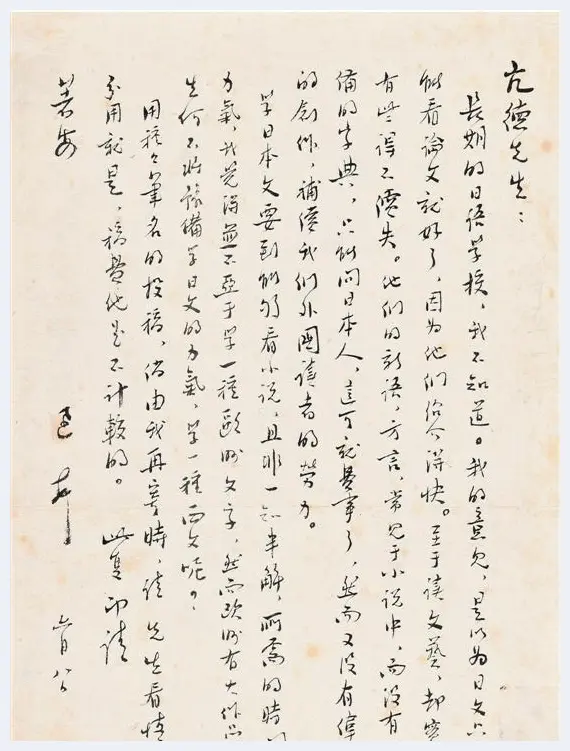 亢德先生：
長期的日語學校，我不知道。我的意見，是以为日文只
能看論文就好了，因为他們绍介得快。至于读文藝，却實
有些得不償失。他們的新語，方言，常見于小説中，而没有
備的字典，只能问日本人，這可就費事了，然而又没有偉
的創作，補償我們外國讀者的勞力。
學日本文要到能夠看小説，且非一知半解，所需的時
力氣，我覺得並不亞于學一種歐洲文字，然而欧洲有大作品
生何不將豫備學日文的力氣，學一種西文呢？
用種々筆名的投稿，倘由我再寄時，請 先生看情
分用就是，稿費他是不計較的。 此复 即請
著安
迅 上 六月八日